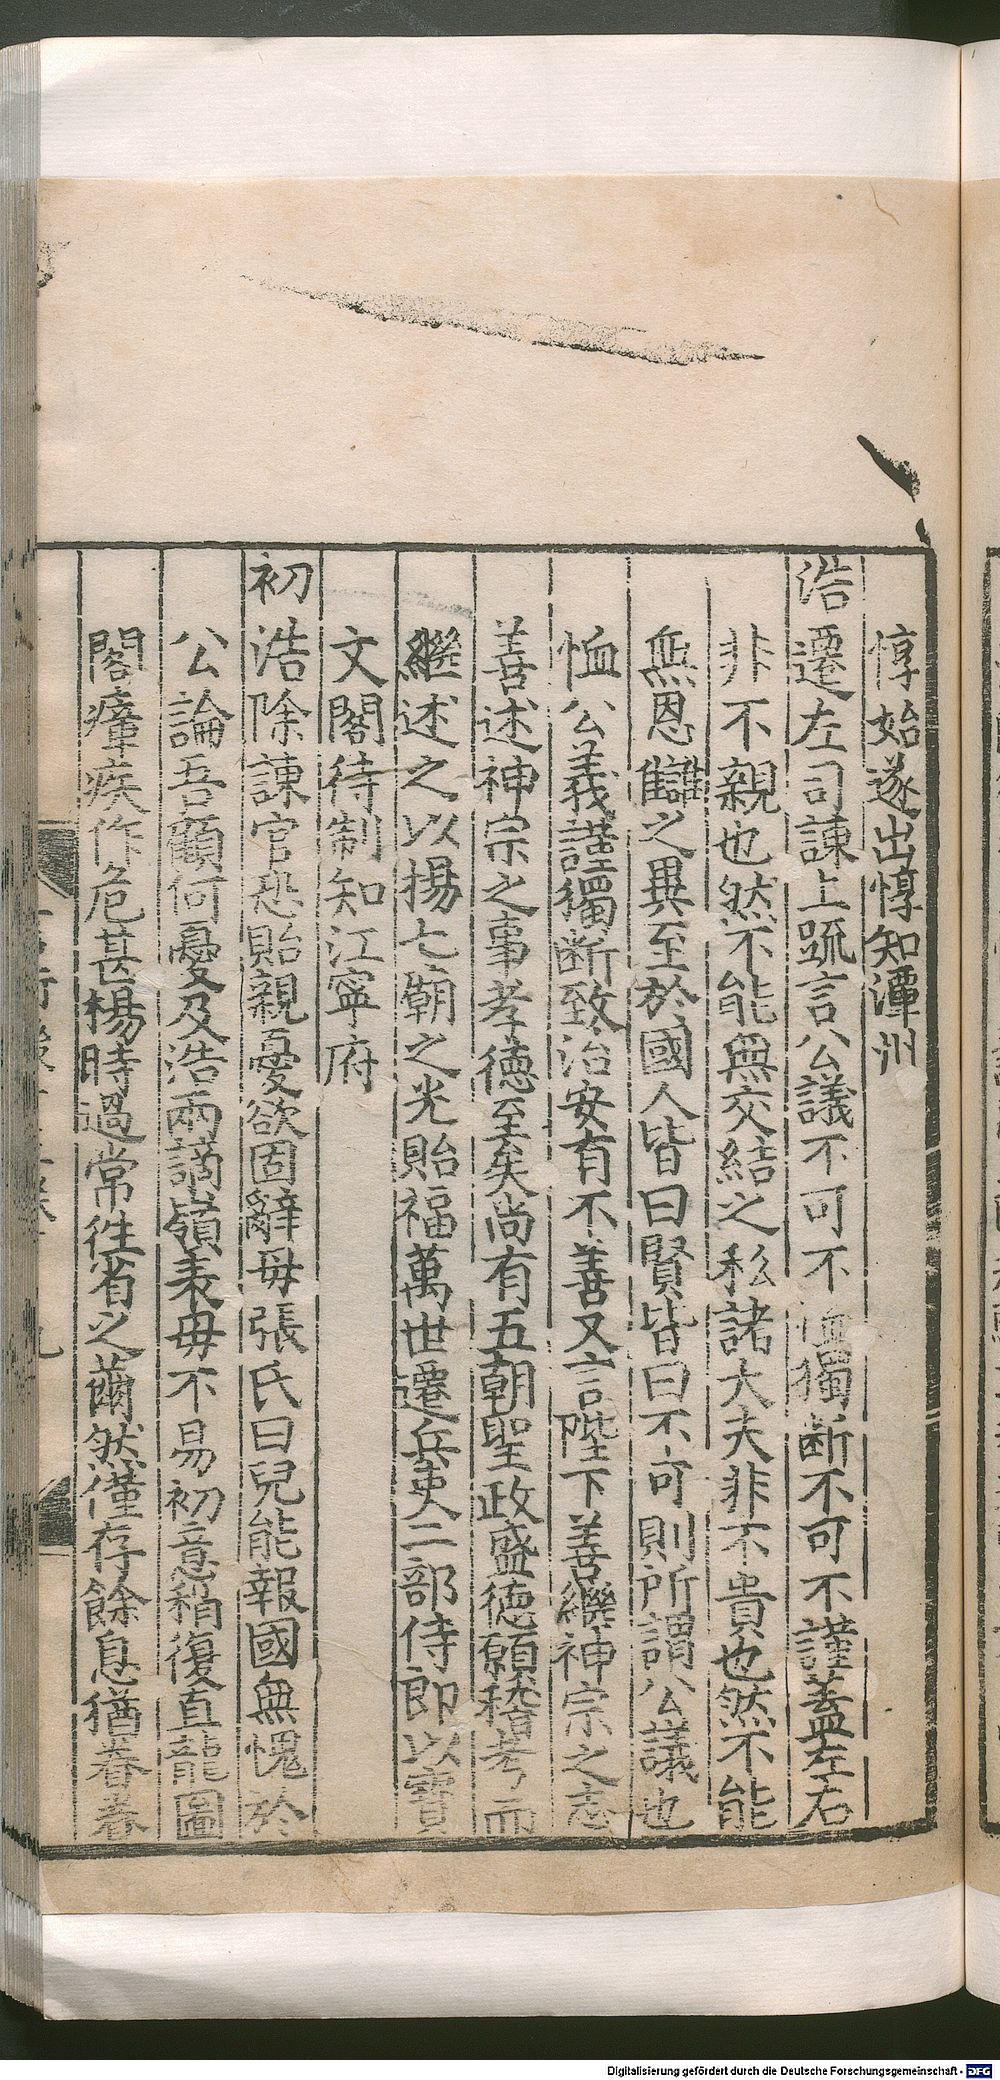 惇始遂出惇知潭州
浩遷左司諫上䟽言公議不可不恤獨斷不可不謹蓋左右
非不親也然不能無交結之私諸大夫非不貴也然不能
無恩讎之異至於國人皆曰賢皆曰不可則所謂公議也
恤公義謹獨斷致治安有不善又言陛下善繼神宗之志
善述神宗之事孝德至矣尚有五朝聖政盛德願稽考而
繼述之以揚七廟之光貽福萬世遷兵吏二部侍郎以寶
文閣待制知江寧府
初浩除諫官恐貽親憂欲固辭母張氏曰兒能報國無愧於
公論吾顧何憂及浩兩謫嶺表母不易初意稍復直龍圖
閣瘴疾作危甚楊時過常徃省之薾然僅存餘息猶眷眷
Digitalisierung gefördert durch die Deutsche Forschungsgemeinschaft - DFG